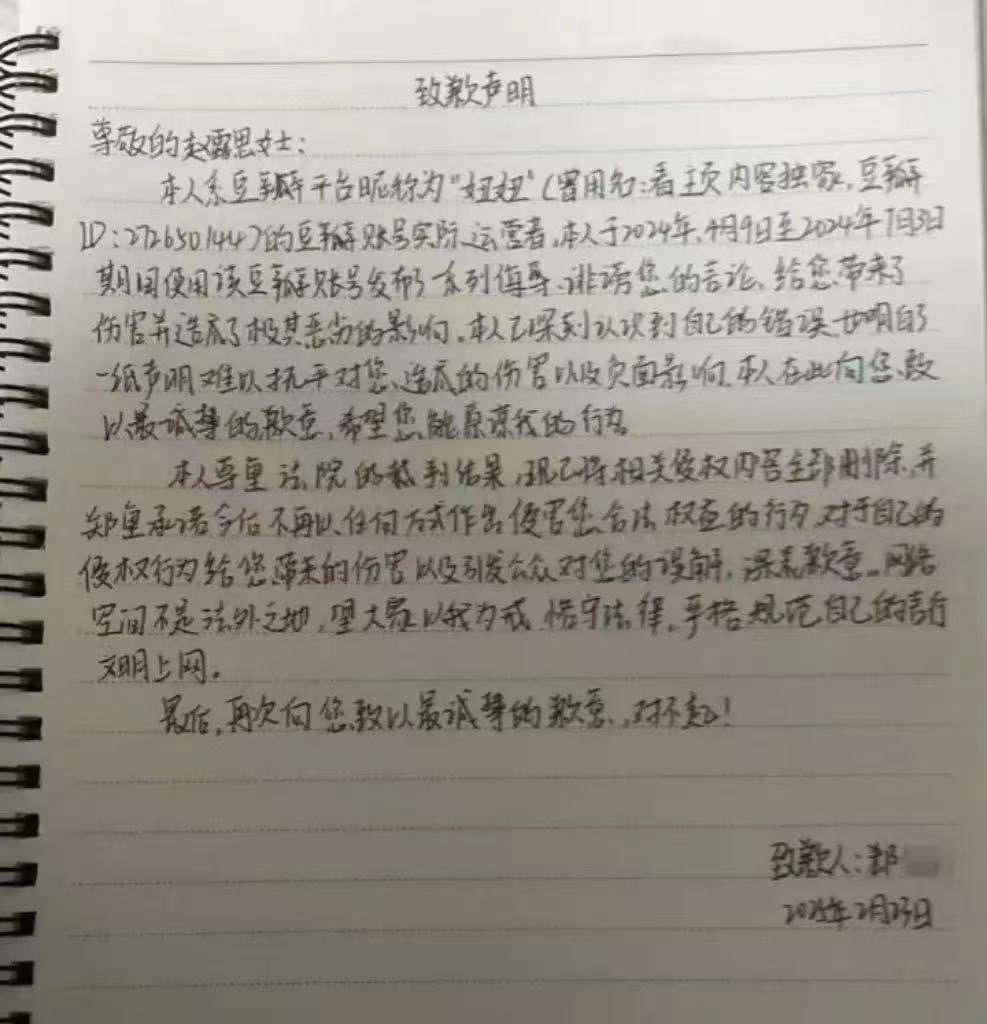 致歉声明
尊敬的赵露思女士:
本人系豆瓣平台昵称为"妞妞"(曾用名:看主页内容独家,豆瓣
ID:272650144)的豆瓣账号实际运营者,本人于2024年4月9日至2024年7月3日
期间使用该豆瓣账号发布了系列侮辱、诽谤您的言论,给您带来了
伤害并造成了极其恶劣的影响。本人已深刻认识到自己的错误,也明白了
一纸声明难以抚平对您造成的伤害以及负面影响,本人在此向您致
以最诚挚的歉意,希望您能原谅我的行为
本人尊重法院的裁判结果,现已将相关侵权内容全部删除,并
郑重承诺今后不再以任何方式作出侵害您合法权益的行为,对于自己的
侵权行为给您带来的伤害以及引发公众对您的误解,深表歉意。网络
空间不是法外之地,望大家以我为戒,恪守法律,严格规范自己的言行
文明上网。
最后,再次向您致以最诚挚的歉意,对不起!
致歉人:郑
2025年2月23日